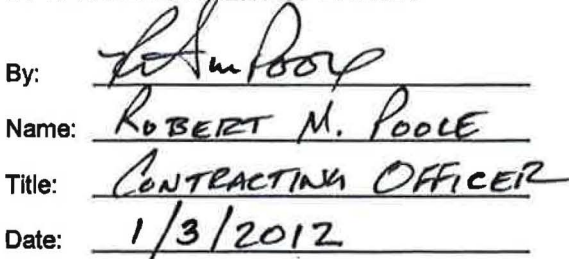 By:
Name: ROBERT M. POOLE
Title: CONTRACTING OFFICER
Date: 1/3/2012